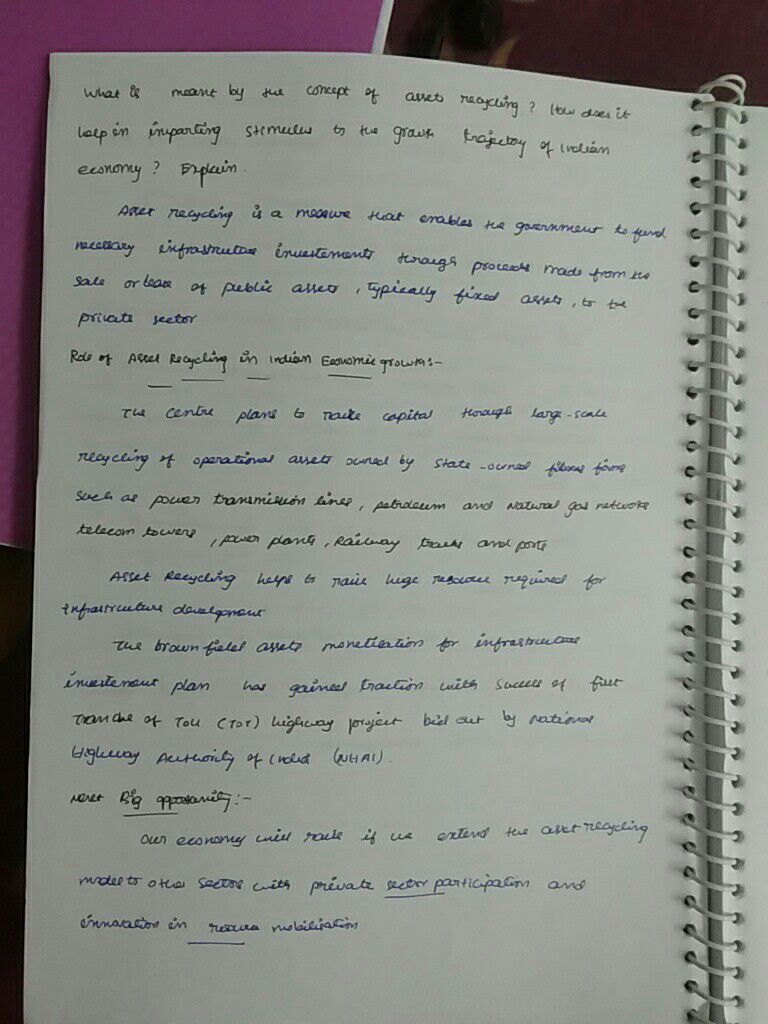 What is meant by the concept of assets recycling? How does it
help in imparting stimulus to the growth trajectory of Indian
economy? Explain.
Asset recycling is a measure that enables the government to fund
necessary infrastructure investements through proceeds made from the
sale or lease of public assets, typically fixed assets, to the
private sector
Role of Asset Recycling in Indian Economic growth:-
The centre plans to raise capital through large-scale
recycling of operational assets owned by state-owned firms
such as power transmission lines, petroleum and Natural gas network
telecom towers, power plants, Railway tracks and ports
Asset Recycling helps to raise huge resource required for
infrastructure development
The brown field assets monetisation for infrastructure
investement plan has gained traction with success of first
Tranche of (TOT) highway project bid out by National
Highway Authority of India (NHAI).
Next Big opportunity:-
Our economy will raise if we extend the asset recycling
model to other sectors with private sector participation and
innovation in mobilisation